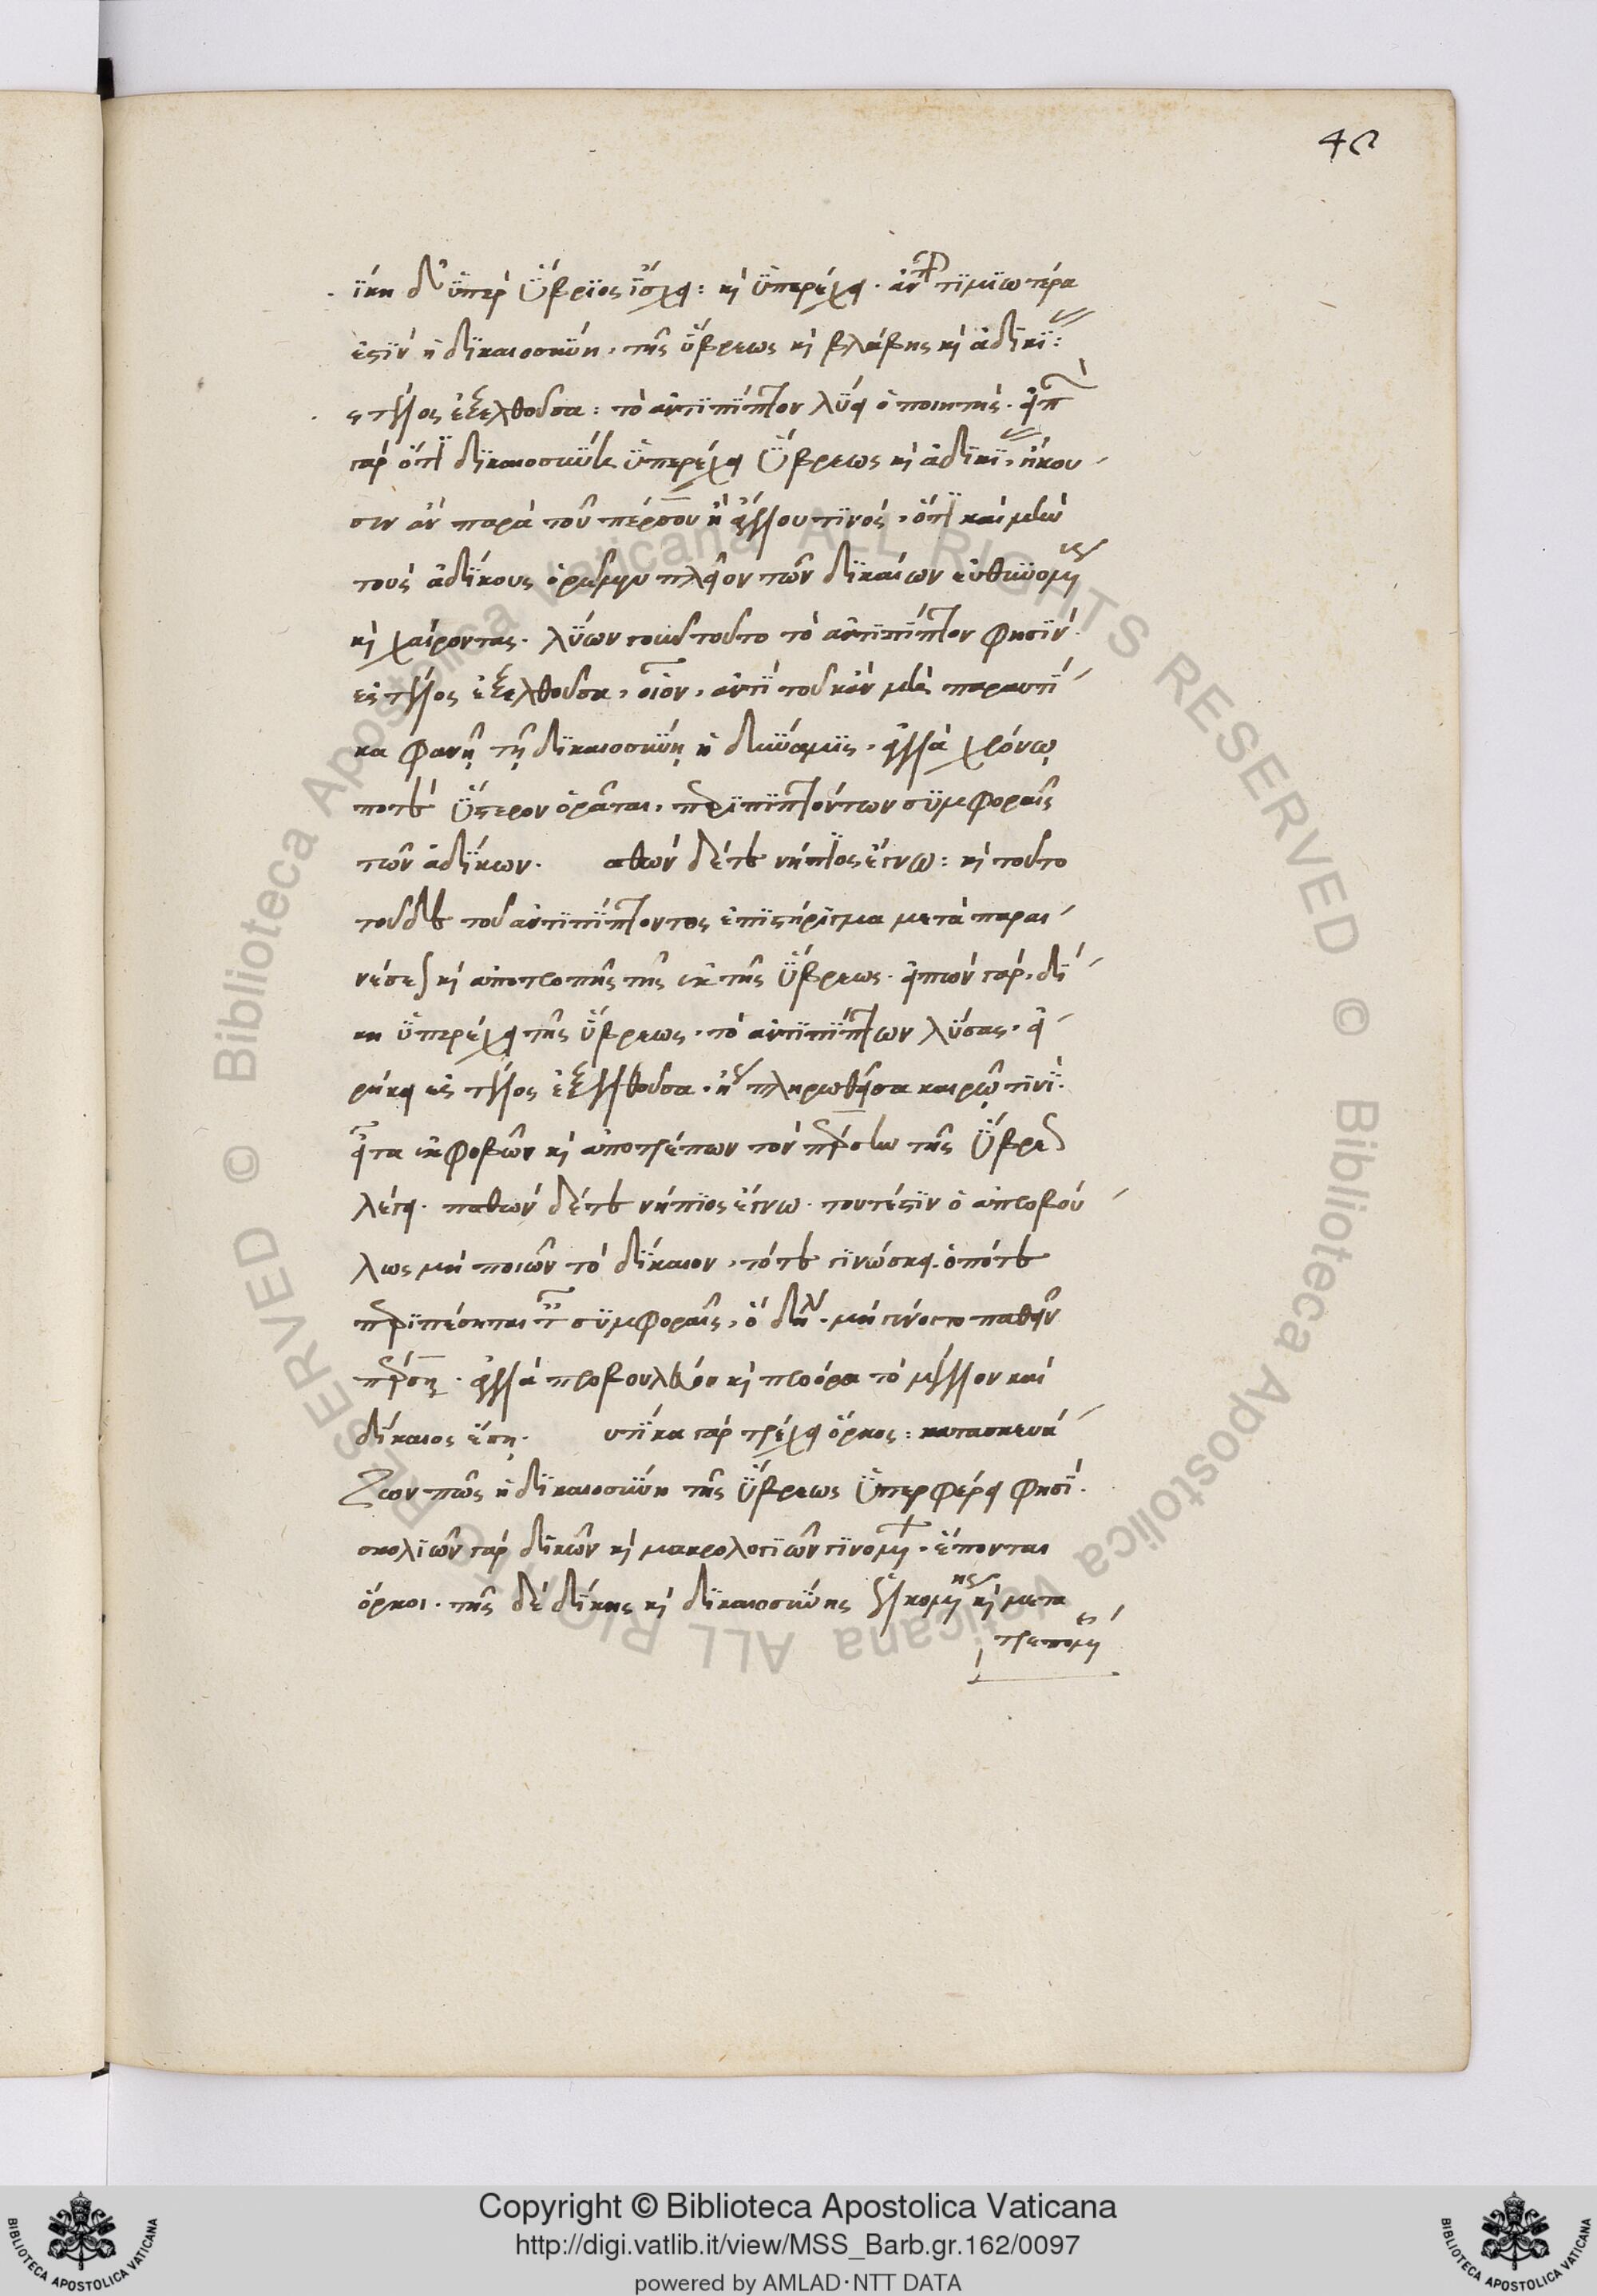 40
ϊκη δ' ὑπὲρ ὕβριος ἴσχει: κὶ ὑπερέχει. ἀντὶ τιμιωτέρα
ἐστὶν ἡ δικαιοσύνη, τῆς ὕβρεως κὶ βλάβης κὶ ἀδικί:
ς τέλος ἐξελθοῦσα: τὸ ἀντιπίπτον λύει ὁ ποιητής. εἰπὼν
γὰρ ὅτι δικαιοσύνη ὑπερέχει ὕβρεως κὶ ἀδικί, ἤκου
σεν ἂν παρὰ τοῦ πέρσου ἢ ἄλλου τινὸς, ὅτι καὶ μὴν
τοὺς ἀδίκους ὁρῶμεν πλεῖον τῶν δικαίων εὐθυνομένους
κὶ χαίροντας. λύων γοῦν τοῦτο τὸ ἀντιπίπτον φησίν.
ἐς τέλος ἐξελθοῦσα, οἷον, ἀντὶ τοῦ κἂν μὴ παραυτί
κα φανῇ τῇ δικαιοσύνῃ ἡ δύναμις, ἀλλὰ χρόνῳ
ποτὲ ὕστερον ὁρᾶται, περιπιπτόντων συμφοραῖς
τῶν ἀδίκων. αθὼν δέ τε νήπιος ἔγνω: κὶ τοῦτο
τοῦδε τοῦ ἀντιπίπτοντος ἐπιστήριγμα μετὰ παραι
νέσεως κὶ ἀποτροπῆς τῆς ἐκ τῆς ὕβρεως. εἰπὼν γὰρ, δί
κη ὑπερέχει τῆς ὕβρεως, τὸ ἀντιπίπτων λύσας, εἰ
ρήκει ἐς τέλος ἐξελθοῦσα, ἤγουν πληρωθεῖσα καιρῷ τινί.
εἶτα ἐκφοβῶν κὶ ἀποτρέπων τὸν πέρσην τῆς ὕβρεως
λέγει. παθὼν δέ τε νήπιος ἔγνω. τουτέστιν ὁ ἀπροβού
λως μὴ ποιῶν τὸ δίκαιον, τότε γινώσκει. ὁπότε
περιπέσηται ταῖς συμφοραῖς, ὃ δηλοῖ. μὴ γένοιτο παθεῖν
πέρση. ἀλλὰ προβουλεύου κὶ προόρα τὸ μέλλον καὶ
δίκαιος ἔσῃ. υτίκα γὰρ τρέχει ὅρκος: κατασκευά
ζων πῶς ἡ δικαιοσύνη τῆς ὕβρεως ὑπερφέρει φησί.
σκολιῶν γὰρ δικῶν κὶ μακρολογιῶν γινομένων, ἕπονται
ὅρκοι. τῆς δὲ δίκης κὶ δικαιοσύνης ἑλκομένης κὶ μετα
τρεπομένης
Copyright © Biblioteca Apostolica Vaticana
http://digi.vatlib.it/view/MSS_Barb.gr.162/0097
powered by AMLAD·NTT DATA